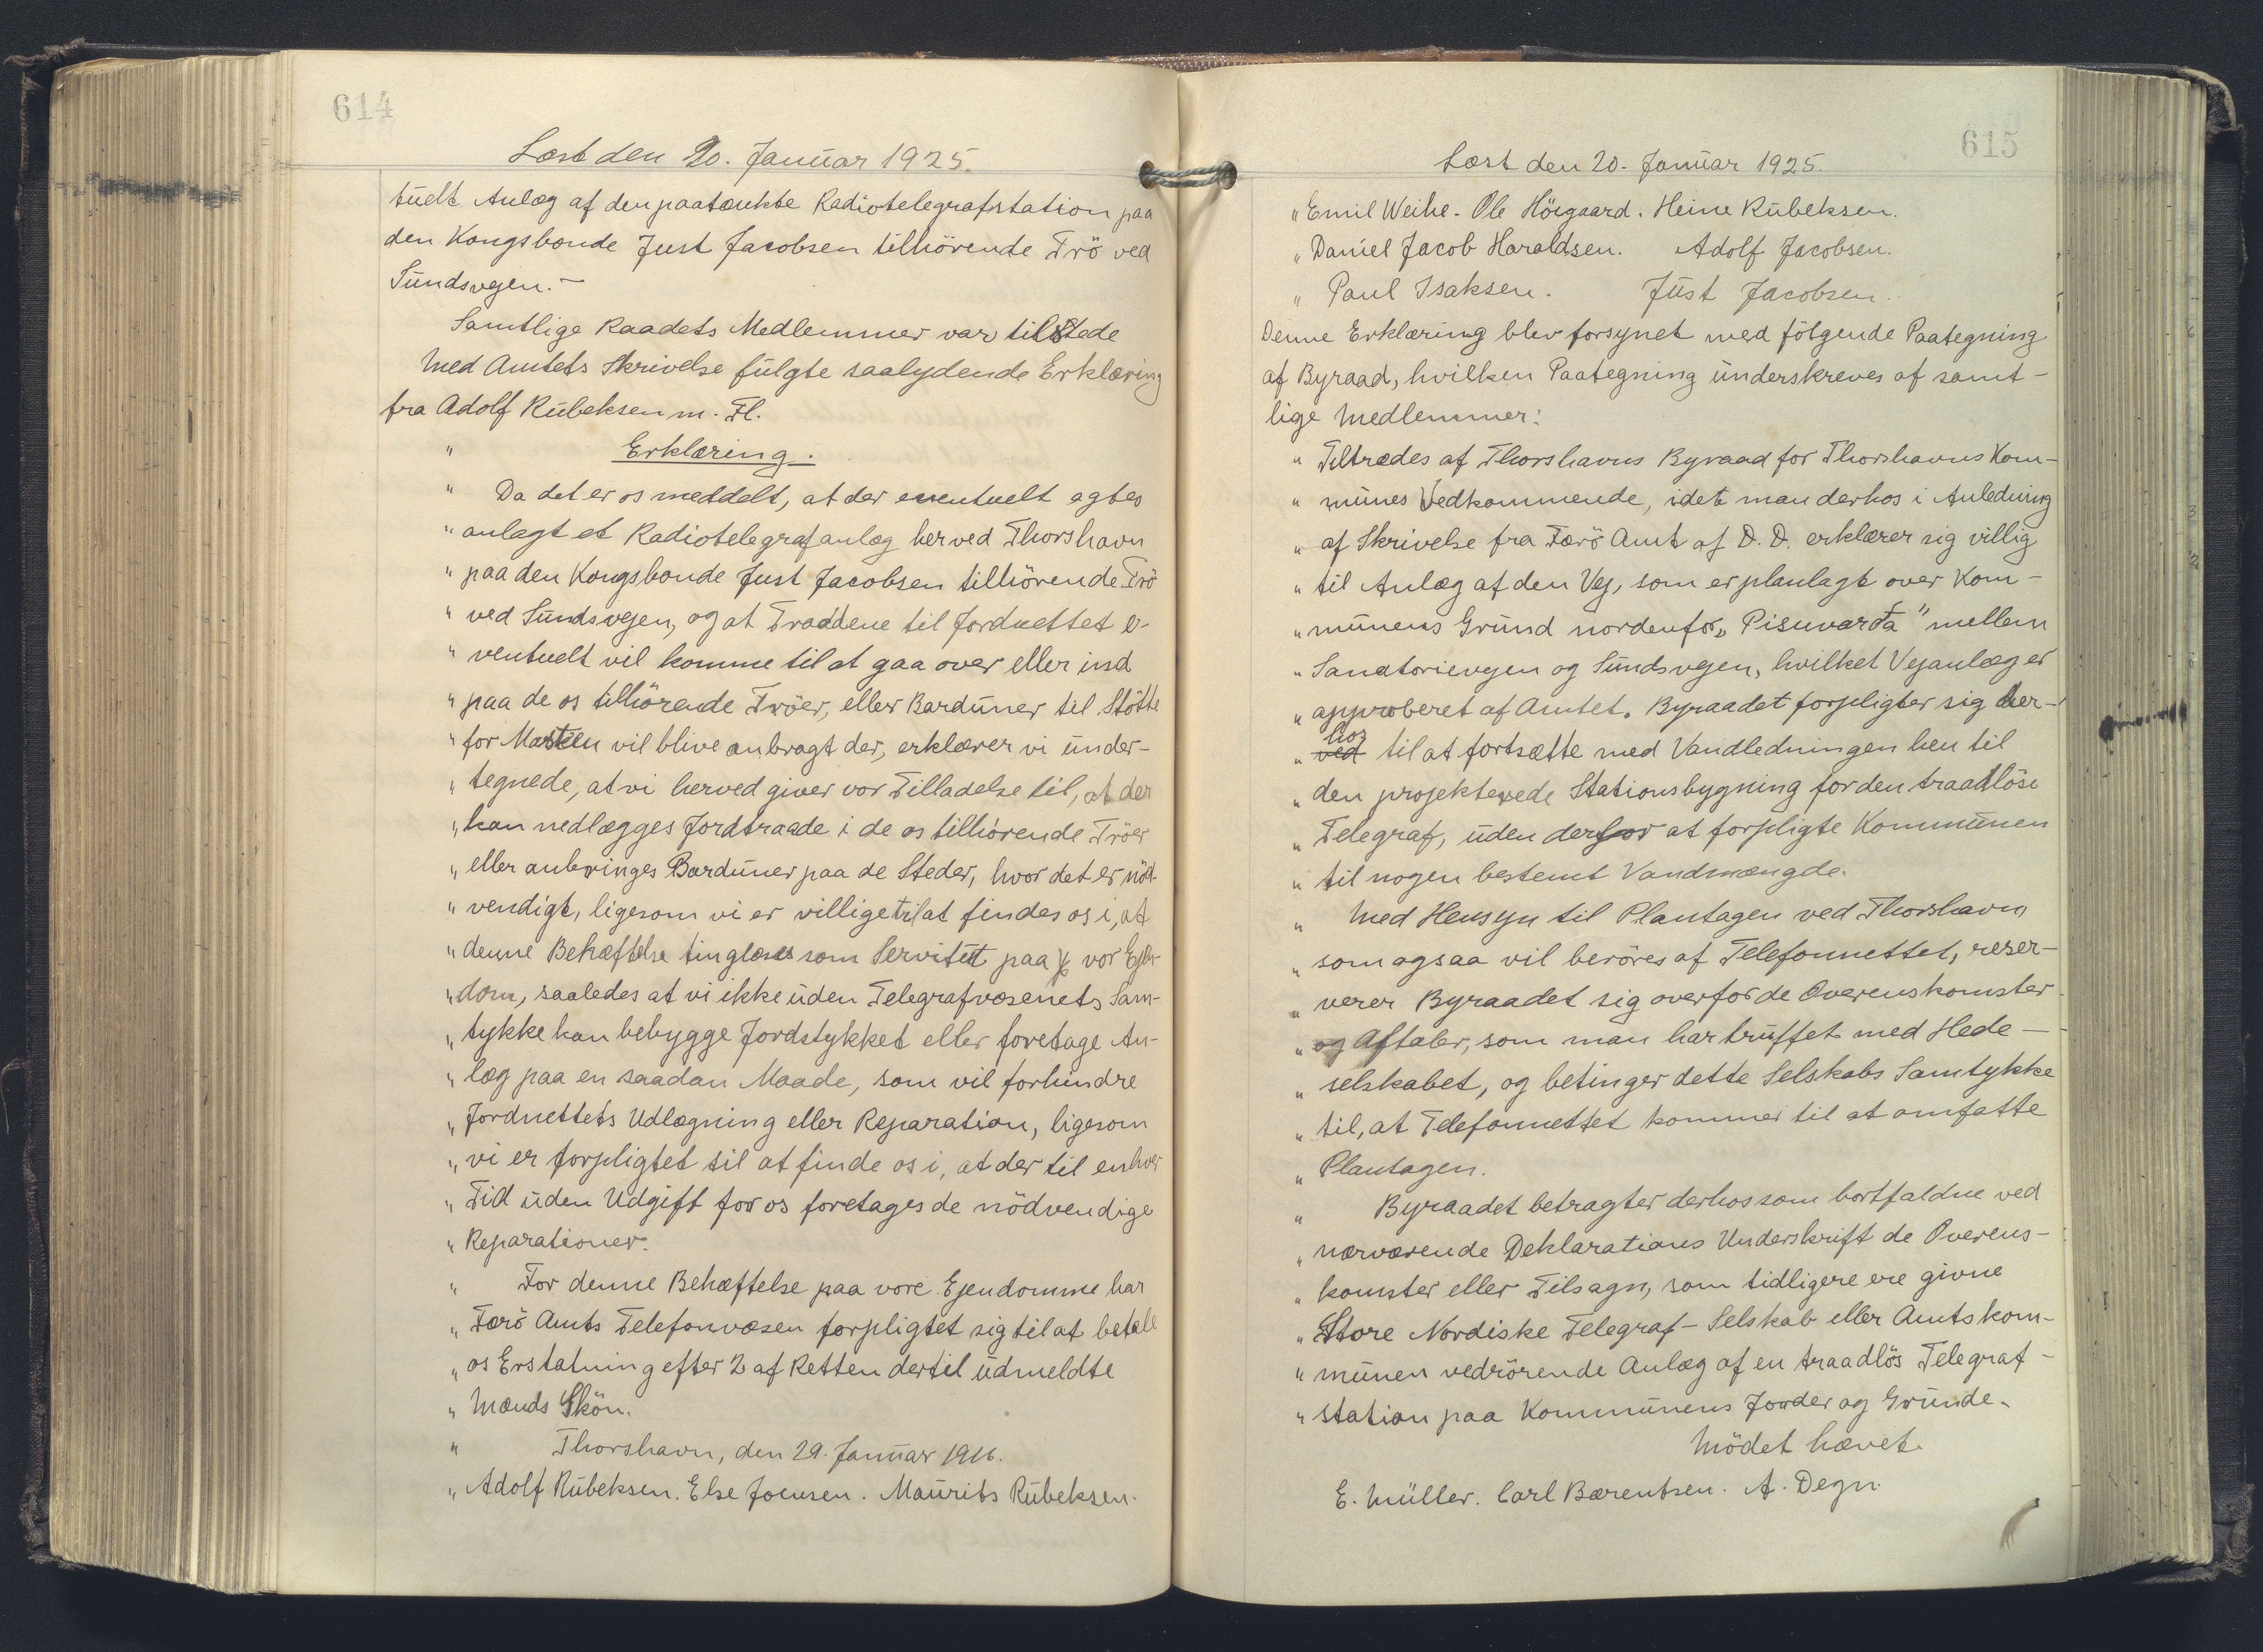 614
Læst den 20. Januar 1925.
tuelt Anlæg af den paatænkte Radiotelegrafstation paa
den Kongsbonde Just Jacobsen tilhörende Trö ved
Sundsvejen.-
Samtlige Raadets Medlemmer var tilstede
Med Amtets Skrivelse fulgte saalydende Erklæring
fra Adolf Rubeksen m. Fl.
" Erklæring.
" Da det er os meddelt, at der eventuelt agtes
" anlagt et Radiotelegrafanlæg her ved Thorshavn
" paa den Kongsbonde Just Jacobsen tilhörende Trö
" ved Sundsvejen, og at Traadene til Jordnettet e-
" ventuelt vil komme til at gaa over eller ind
" paa de os tilhörende Tröer, eller Barduner til Stötte
" for Masten vil blive anbragt der, erklærer vi under-
" tegnede, at vi herved giver vor Tilladelse til, at der
" kan nedlægges Jordtraade i de os tilhörende Tröer
" eller anbringes Barduner paa de Steder, hvor det er nöd-
" vendigt, ligesom vi er villige til at findes os i, at
" denne Behæftelse tinglæses som Servitut paa vor Ejen-
" dom, saaledes at vi ikke uden Telegrafvæsenets Sam-
" tykke kan bebygge Jordstykket eller foretage An-
" læg paa en saadan Maade, som vil forhindre
" Jordnettets Udlægning eller Reparation, ligesom
" vi er forpligtet til at finde os i, at der til enhver
" Tid uden Udgift for os foretages de nödvendige
" Reparationer.
" For denne Behæftelse paa vore Ejendomme har
" Færö Amts Telefonvæsen forpligtet sig til at betale
" os Erstatning efter 2 af Retten dertil udmeldte
" Mænds Skön.
" Thorshavn, den 29. Januar 1916.
" Adolf Rubeksen. Else Joensen. Maurits Rubeksen.
615
Læst den 20. Januar 1925.
" Emil Weihe. Ole Höigaard. Heine Rubeksen.
" Daniel Jacob Haraldsen. Adolf Jacobsen.
" Paul Isaksen. Just Jacobsen.
Denne Erklæring blev forsynet med fölgende Paategning
af Byraad, hvilken Paategning underskreves af samt-
lige Medlemmer:
" Tiltrædes af Thorshavns Byraad for Thorshavns Kom-
" munes Vedkommende, idet man derhos i Anledning
" af Skrivelse fra Færö Amt af D. D. erklærer sig villig
" til Anlæg af den Vej, som er planlagt over Kom-
" munens Grund nordenfor "Pisuvarða" mellem
" Sanatorievejen og Sundsvejen, hvilket Vejanlæg er
" approberet af Amtet. Byraadet forpligter sig der-
" ved hos til at fortsætte med Vandledningen hen til
" den projekterede Stationsbygning for den traadlöse
" Telegraf, uden derfor at forpligte Kommunen
" til nogen bestemt Vandmængde.
" Med Hensyn til Plantagen ved Thorshavn,
" som ogsaa vil beröres af Telefonnettet, reser-
" verer Byraadet sig overfor de Overenskomster
" og Aftaler, som man har truffet med Hede-
" selskabet, og betinger dette Selskabs Samtykke
" til, at Telefonnettet kommer til at omfatte
" Plantagen.
" Byraadet betragter derhos som bortfaldne ved
" nærværende Deklarations Underskrift de Overens-
" komster eller Tilsagn, som tidligere ere givne
" Store Nordiske Telegraf-Selskab eller Amtskom-
" munen vedrörende Anlæg af en traadlös Telegraf-
" station paa Kommunens Jorder og Grunde.
Mödet hævet.
E. Müller. Carl Bærentsen. A. Degn.